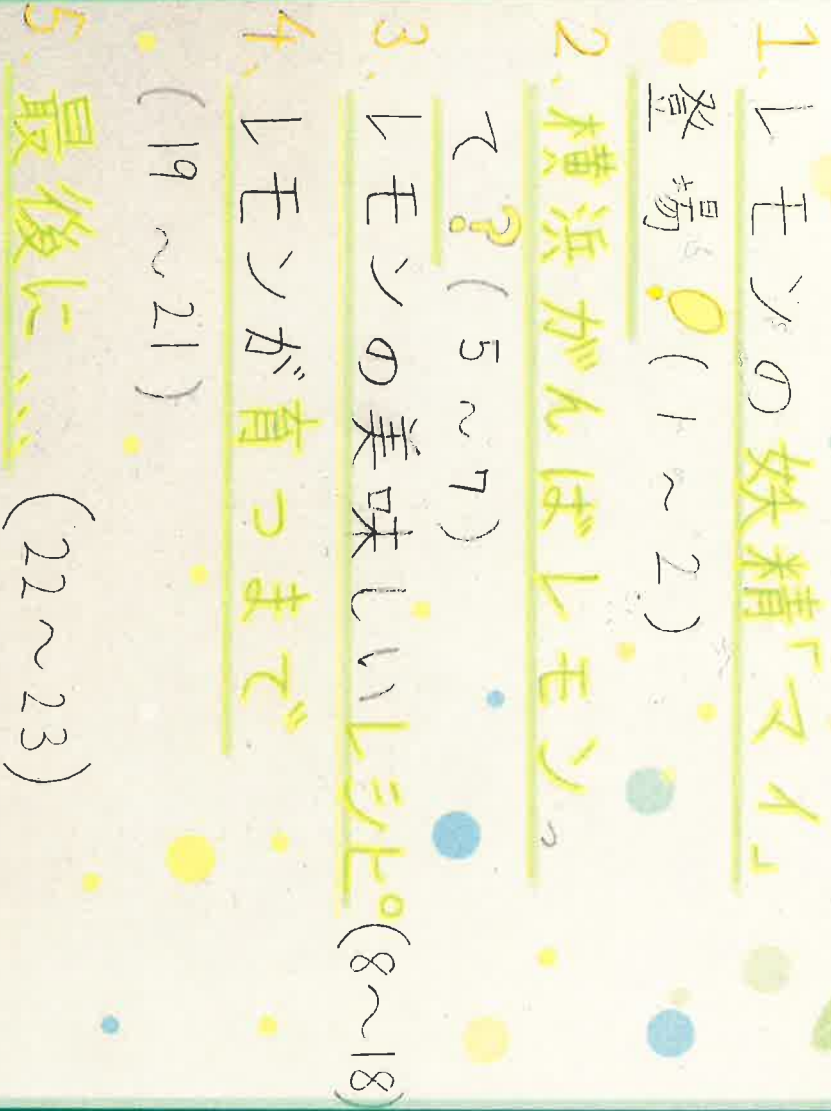 1、レモンの妖精「マイ」
登場(1~2)
2、横浜がんばレモンっ
て?(5~7)
3、レモンの美味しいレシピ。(8~18)
4、レモンが育つまで
(19~21)
5、最後に...(22~23)